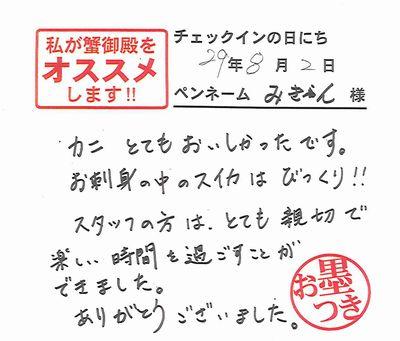 私が蟹御殿を
オススメ
します!!
チェックインの日にち
29年8月2日
ペンネーム みきゃん 様
カニ とても おいしかったです。
お刺身の中のスイカは びっくり!!
スタッフの方は、とても 親切で
楽しい 時間を過ごすことが
できました。
ありがとうございました。
お墨つき